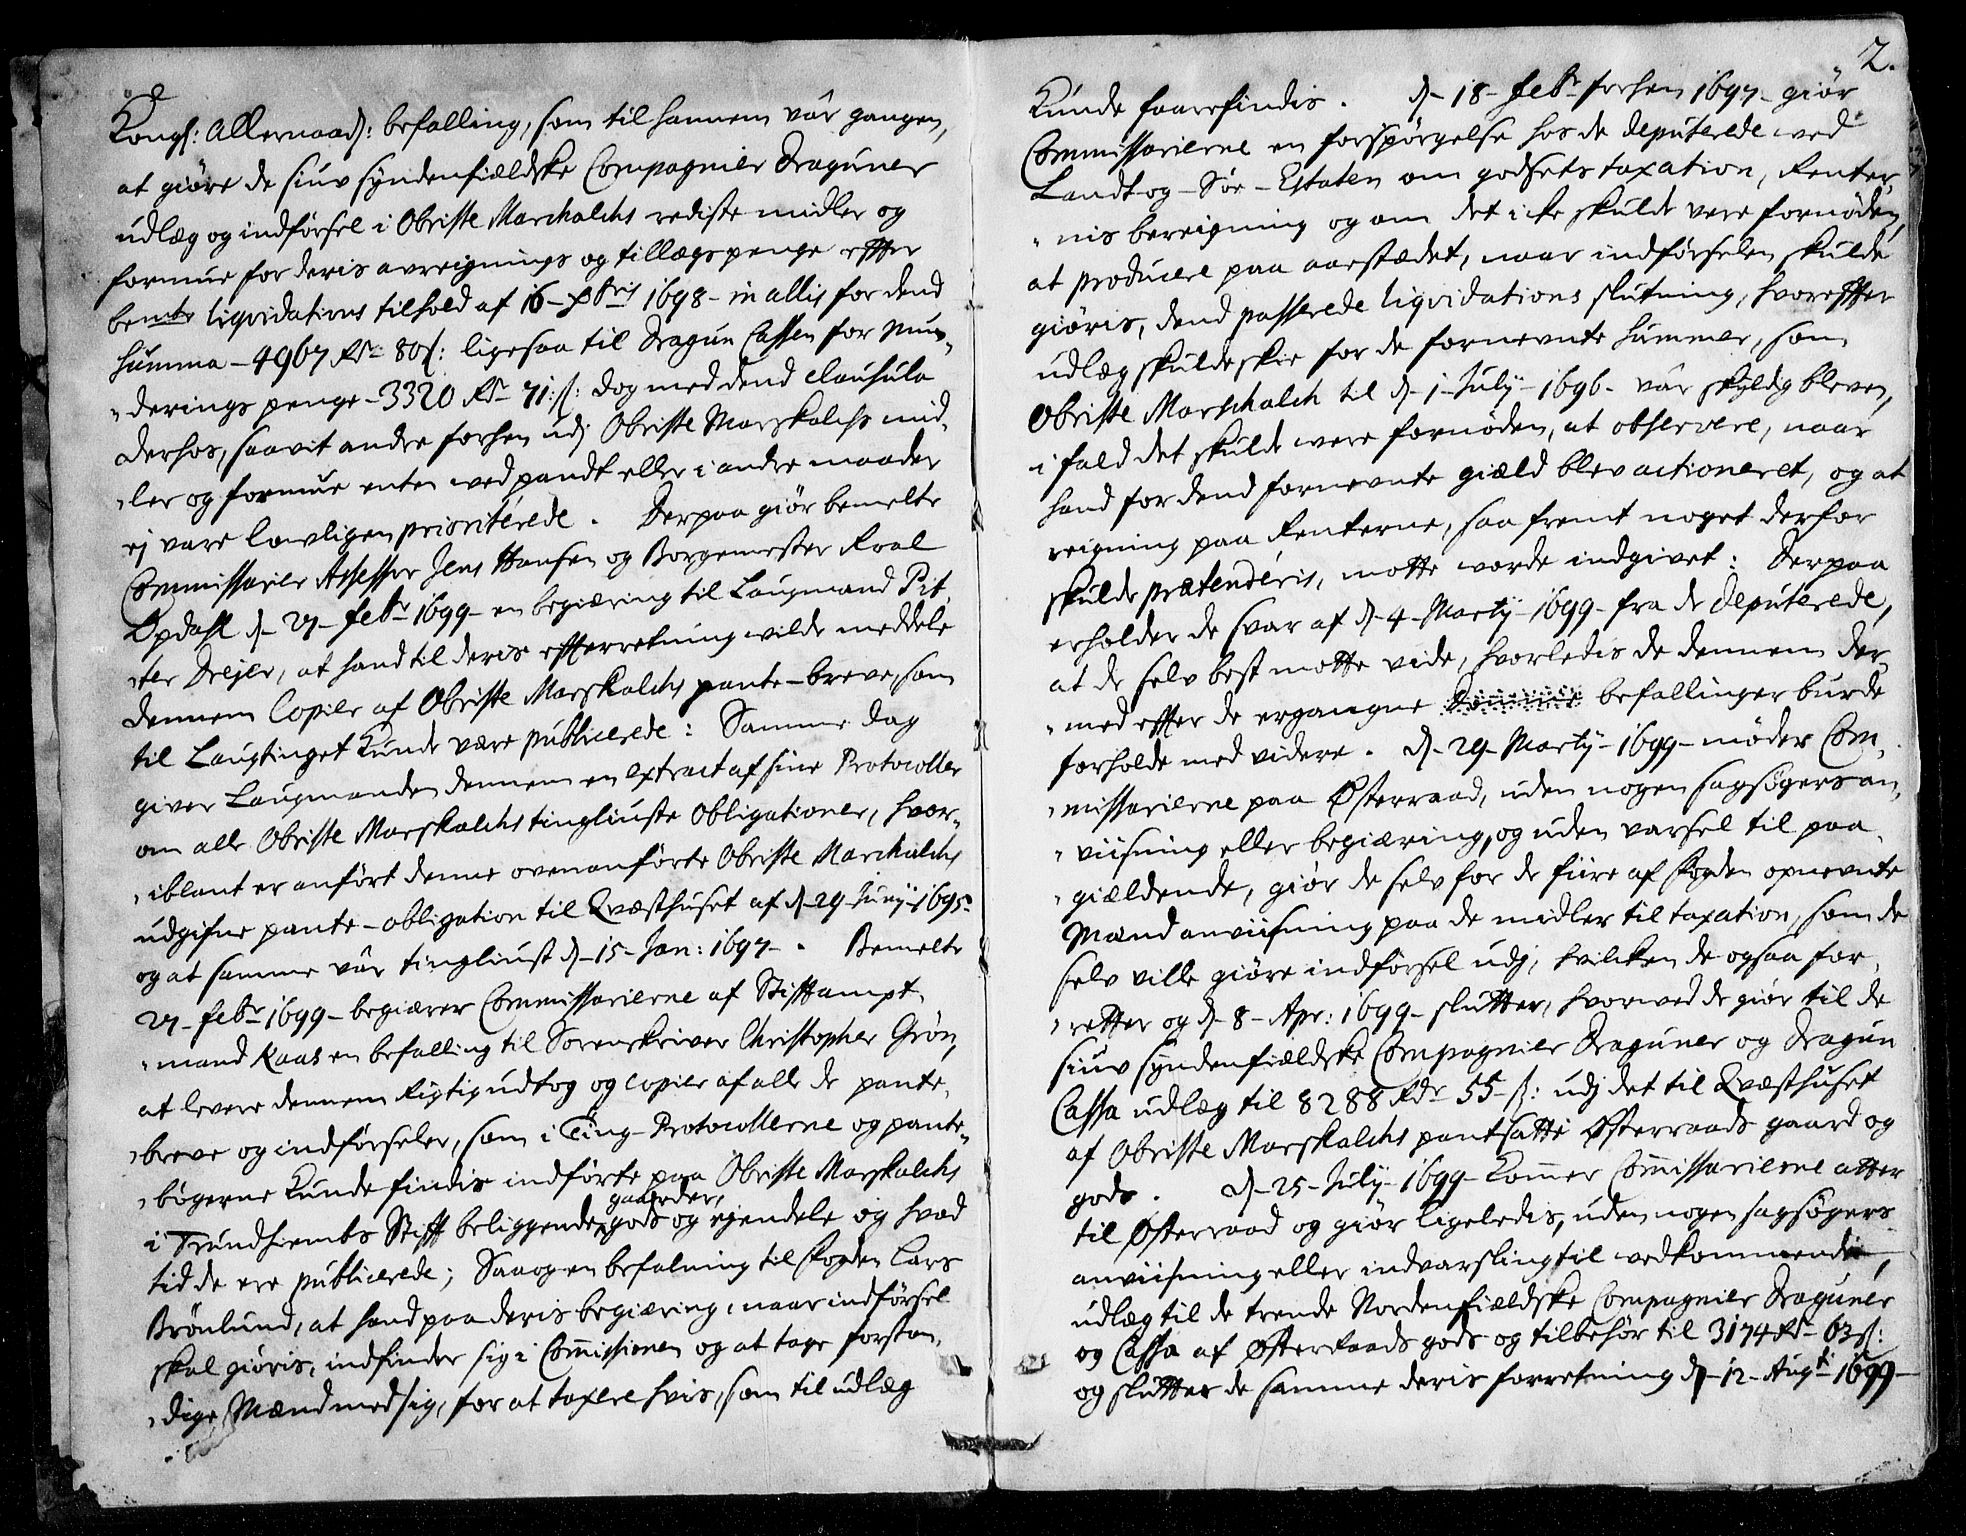 Kongl: Allernaad: befalling, som til hannem vâr gangen,
at giöre de siuv syndenfieldske Compagnier Draguner
udlæg og indförsel i Obriste Marchalchs rediste midler og
formue for deris avreignings og tillægs penge effter
bemte liqvidations tilhold af 16-Xbris 1698- in allis for dend
summa-4967 Rdr 80 s: ligesaa til Dragun Cassen for mun-
"derings penge-3320 Rdr 71: s: dog med dend clausula
derhos, saavit andre forhen udj Obriste Marskalchs mid,
"ler og formue enten ved pandt eller i andre maader
ej vare lowligen prioriterede. Derpaa giör bemelte
Commissarier Assessor Jens Hansen og Borgemester Roal
Opdahl d-27-febr 1699-en begiæring til Laugmand Pit,
"ter Drejer, at hand til deris efterretning wilde meddele
dennem Copier af Obriste Marskalchs pante-breve, som
til Laugtinget Kunde være publicerede: Samme dag
giver Laugmanden dennem en extract af sine Protocoller
om alle Obriste Marskalchs tingliuste obligationer, hvor-
"iblant er anfört denne ovenanförte Obriste Marchalchs
udgifne pante-obligation til Qvæsthuset af d-29-Junij-1695-
og at samme vâr tingliust d-15-Jan: 1697-. Bemelte
27-febr 1699-begiærer Commissarierne af Stifftampt,
"mand Kaas en befalling til Sorenskriver Christopher Grön,
at levere dennem Rigtig udtog og Copier af alle de pante,
"breve og indförseler, som i Ting-Protocollerne og pante-
"bögerne Kunde findis indförte paa Obriste Marskalchs
gaarder,
i Trundhiembs Stifft beliggende gods og ejendele og hvad
tid de ere publicerede; Saa og en befalning til fogden Lars
Brönlund, at hand paa deris begiæring, naar indförsel
skal giöris, indfinder sig i Comissionen og at tage forstan,
"dige Mænd med sig, for at taxere hvis, som til udlæg
2.
Kunde faarefindis. d-18-febr forhen 1697-giör
Commissarierne en forspörgelse hos de deputerede ved
Landt og-Söe-Etaten om godsets taxation, Renter,
"nis bereigning og om det icke skulde vere fornöden,
at producere paa aastædet, naar indförselen skulde
giöris, dend passerede liqvidations slutning, hvoreffter
udlæg skulde skee for de fornevnte summer, som
Obriste Marschalch til d-1-July-1696- vâr skyldig bleven,
i fald det skulde were fornöden, at observere, naar
hand for dend fornevnte gield blev actioneret, og at
reigning paa Renterne, saa fremt noget derfor
skulde prætenderis, motte worde indgivet: Derpaa
erholder de svar af d-4-Martij-1699-fra de deputerede,
at de selv best motte vide, hvorledis de dennem der,
"med effter de ergangne befallinger burde
forholde med videre. d-29-Martij-1699-möder Com,
"missarierne paa Österraad, uden nogen sagsögers an,
"viisning eller begiæring, og uden varsel til paa,
"gieldende, giör de selv for de fiire af fogden opnevnte
Mænd anviisning paa de midler til taxation, som de
selv ville giöre indförsel udj, hvilcken de ogsaa for,
"retter og d-8-Apr: 1699-slutter, hvorved de giör til de
siuv syndenfieldske Compagnier Draguner og Dragun
Cassa udlæg til 8288 Rdr 55-s: udj det til Qvæsthuset
af Obriste Marskalchs pantsatte Österraads gaard og
gods. d-25-July-1699-Komer Comissarierne atter
til Österraad og giör ligeledis, uden nogen sagsögers
anviisning eller indvarsling til vedkommende,
udlæg til de trende Nordenfieldske Compagnier Draguner
og Cassa af Österraads gods og tilbehör til 3174 Rdr-63 s:
og slutter de samme deris forretning d-12-Augti 1699-